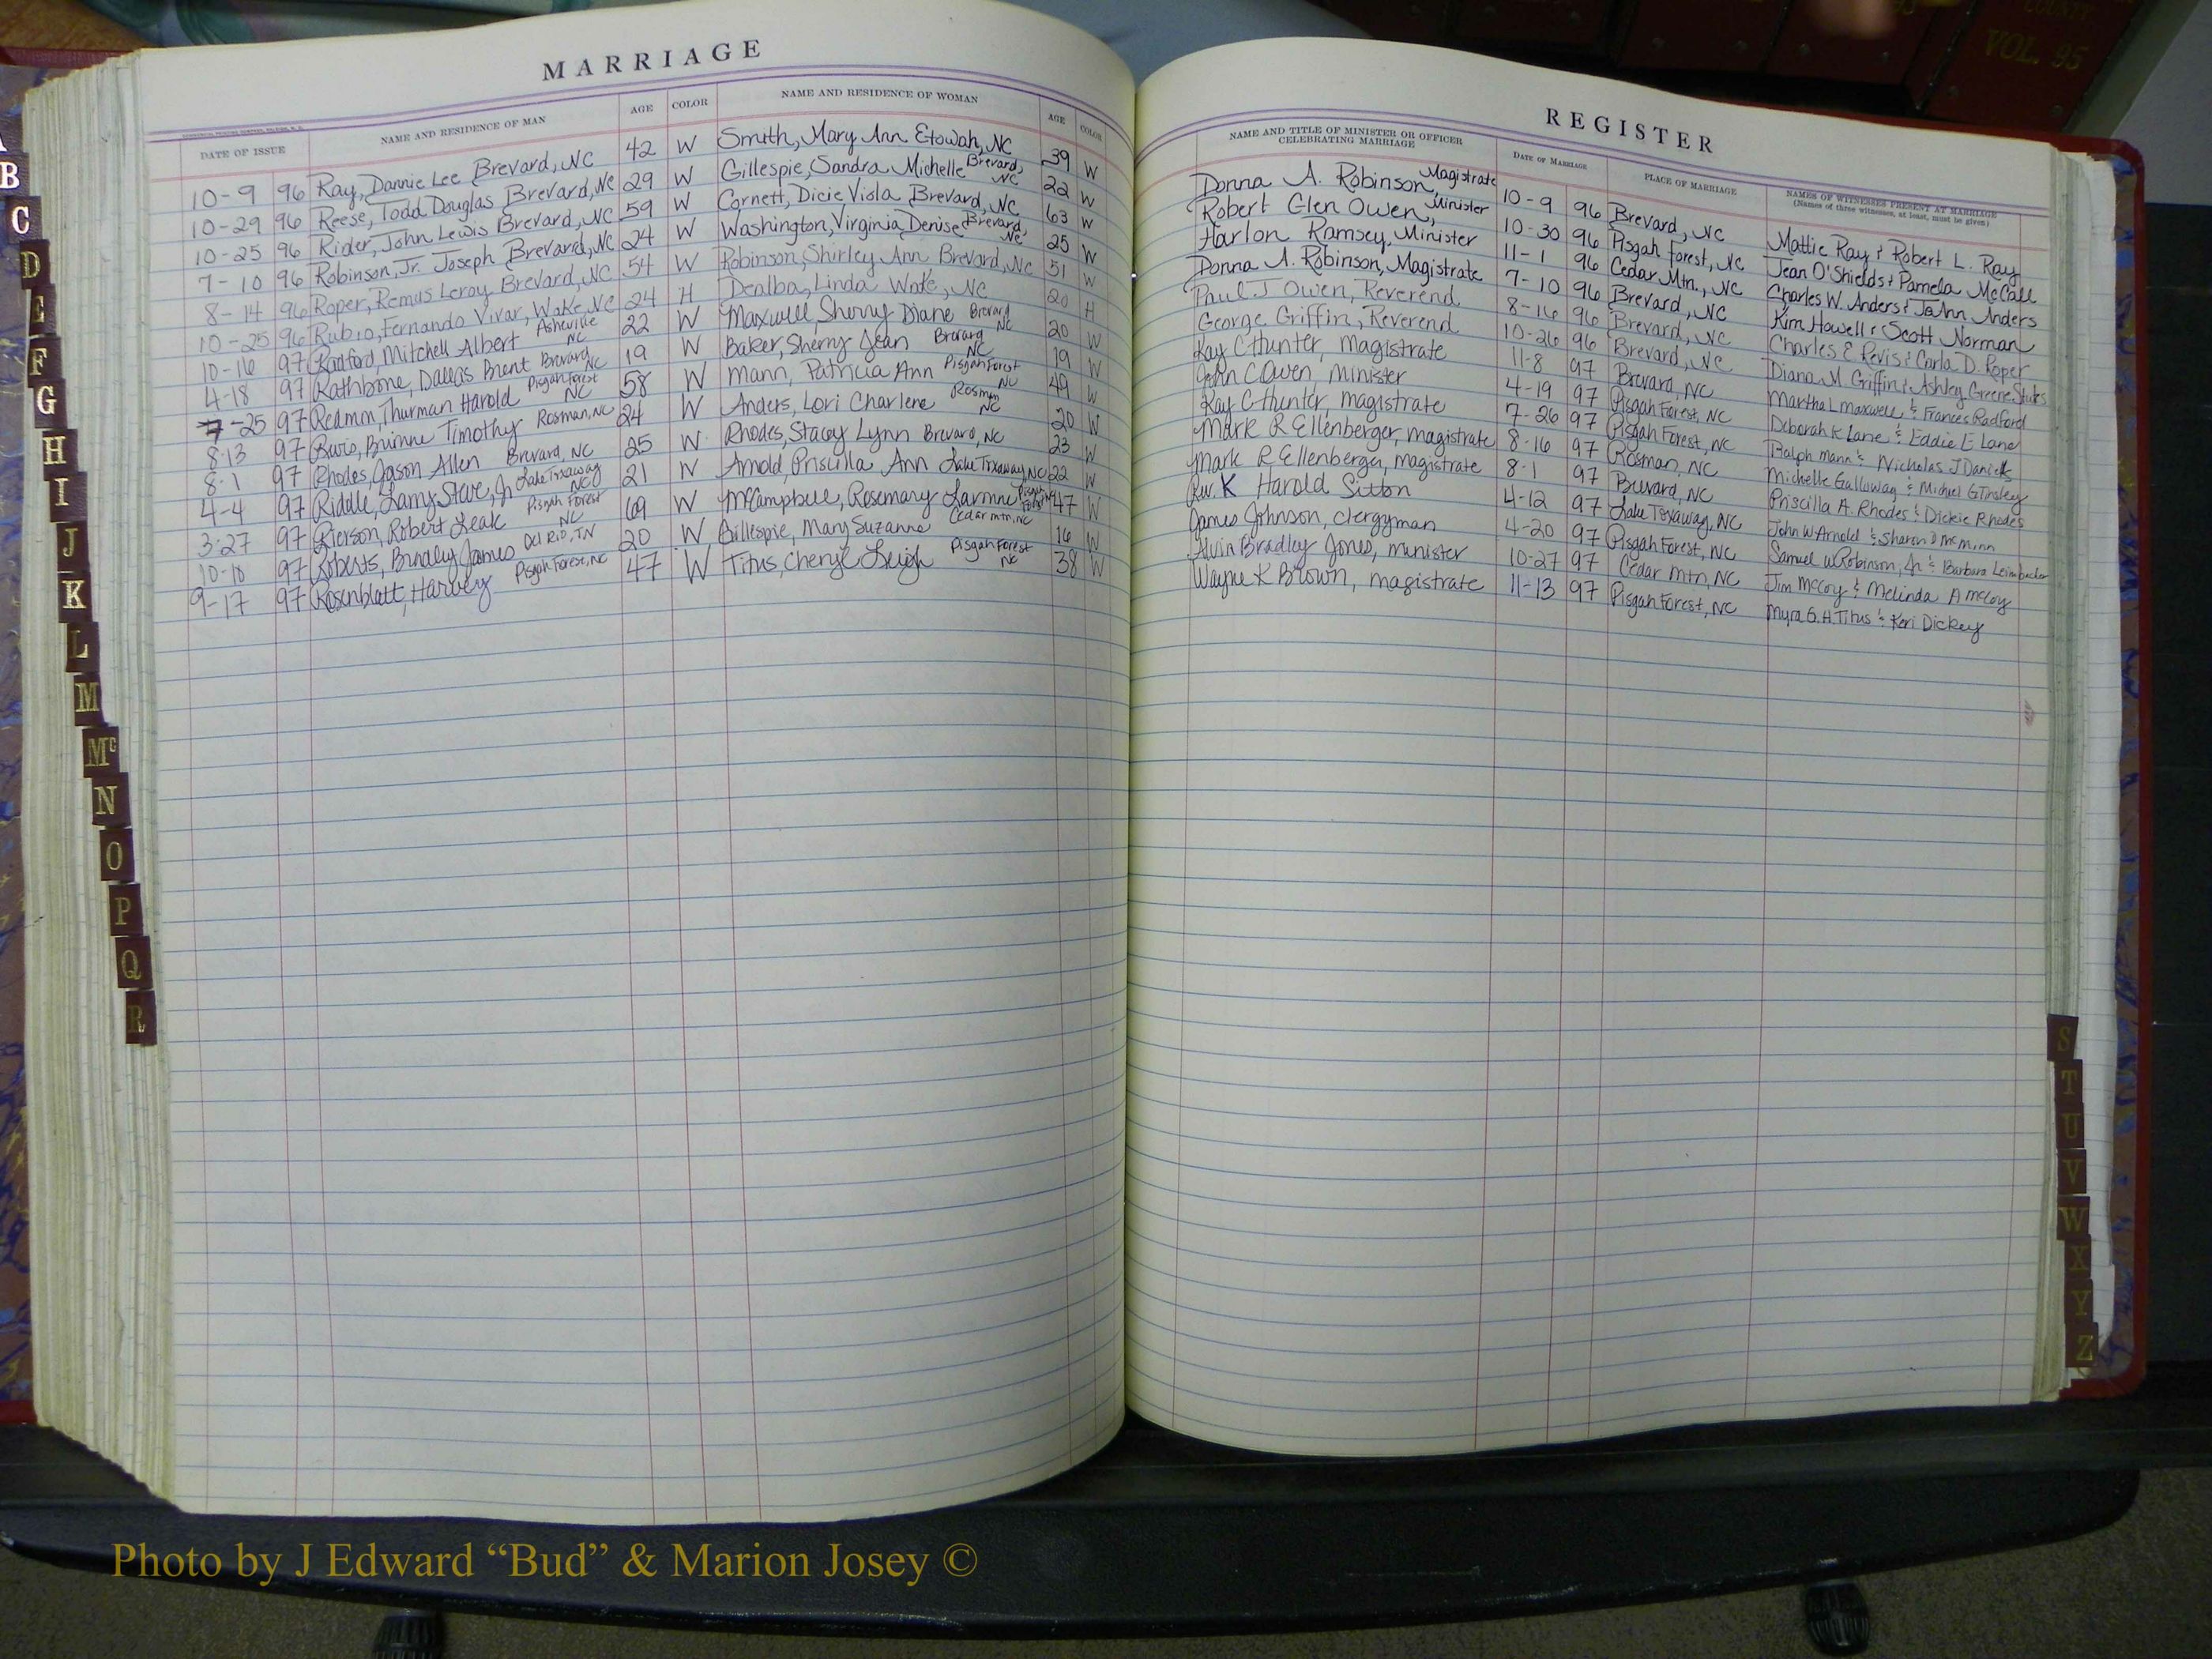 MARRIAGE
DATE OF ISSUE NAME AND RESIDENCE OF MAN AGE COLOR NAME AND RESIDENCE OF WOMAN AGE COLOR
10-9 96 Ray, Dannie Lee Brevard, NC 42 W Smith, Mary Ann Etowah, NC 39 W
10-29 96 Reese, Todd Douglas Brevard, NC 29 W Gillespie, Sandra Michelle Brevard, NC 22 W
10-25 96 Rider, John Lewis Brevard, NC 59 W Cornett, Dicie Viola Brevard, NC 63 W
7-10 96 Robinson, Jr. Joseph Brevard, NC 24 W Washington, Virginia Denise Brevard, NC 25 W
8-14 96 Roper, Remus Leroy Brevard, NC 54 W Robinson, Shirley Ann Brevard, NC 51 W
10-25 96 Rubio, Fernando Vivar, Wake, NC 24 H Dealba, Linda Wake, NC 20 H
10-16 97 Radford, Mitchell Albert Asheville NC 22 W Maxwell, Sherry Diane Brevard NC 20 W
4-18 97 Rathbone, Dallas Brent Brevard NC 19 W Baker, Sherry Jean Brevard NC 19 W
7-25 97 Thurman Harold Pisgah Forest NC 58 W Mann, Patricia Ann Pisgah Forest NC 49 W
8-13 97 Timothy Rosman, NC 24 W Anders, Lori Charlene Rosman NC 20 W
8-1 97 Rhodes, Jason Allen Brevard, NC 25 W Rhodes, Stacey Lynn Brevard, NC 23 W
4-4 97 Riddle, Larry Steve, Jr Lake Toxaway NC 21 W Arnold, Priscilla Ann Lake Toxaway NC 22 W
3-27 97 Rierson, Robert Leak Pisgah Forest NC 69 W McCampbell, Rosemary Pisgah Forest 47 W
10-10 97 Roberts, Bradley James Del Rio, TN 20 W Gillespie, Mary Suzanne Cedar mtn, NC 16 W
9-17 97 Rosenblatt, Harvey Pisgah Forest, NC 47 W Titus, Cheryl Leigh Pisgah Forest NC 38 W
REGISTER
NAME AND TITLE OF MINISTER OR OFFICER CELEBRATING MARRIAGE DATE OF MARRIAGE PLACE OF MARRIAGE NAMES OF WITNESSES PRESENT AT MARRIAGE
(Names of three witnesses, at least, must be given)
Donna A. Robinson, Magistrate 10-9 96 Brevard, NC Mattie Ray & Robert L. Ray
Robert Glen Owen, Minister 10-30 96 Pisgah Forest, NC Jean O'Shields & Pamela McCall
Harlon Ramsey, Minister 11-1 96 Cedar Mtn., NC Charles W. Anders & JoAnn Anders
Donna A. Robinson, Magistrate 7-10 96 Brevard, NC Kim Howell & Scott Norman
Paul J Owen, Reverend 8-16 96 Brevard, NC Charles E Revis & Carla D. Roper
George Griffin, Reverend 10-26 96 Brevard, NC Diana M Griffin & Ashley Greene
Kay C Hunter, magistrate 11-8 97 Brevard, NC Martha L maxwell & Frances Radford
John C Owen, minister 4-19 97 Pisgah Forest, NC Deborah K Lane & Eddie E Lane
Kay C Hunter, magistrate 7-26 97 Pisgah Forest, NC Ralph mann & Nicholas J Daniels
Mark R Ellenberger, magistrate 8-16 97 Rosman, NC Michelle Galloway & Michael G Tinsley
Mark R Ellenberger, magistrate 8-1 97 Brevard, NC Priscilla A. Rhodes & Dickie Rhodes
Rev. K Harold Sitton 4-12 97 Lake Toxaway, NC John W Arnold & Sharon D McMinn
James Johnson, clergyman 4-20 97 Pisgah Forest, NC Samuel W Robinson, Jr & Barbara Leimbacher
Alvin Bradley Jones, minister 10-27 97 Cedar mtn, NC Jim McCoy & Melinda A McCoy
Wayne K Brown, magistrate 11-13 97 Pisgah Forest, NC Myra G. H. Titus & Keri Dickey
B
C
D
E
F
G
H
I
J
K
L
M
Mc
N
O
P
Q
R
S
T
U
V
W
X
Y
Z
VOL. 95
Photo by J Edward “Bud” & Marion Josey ©